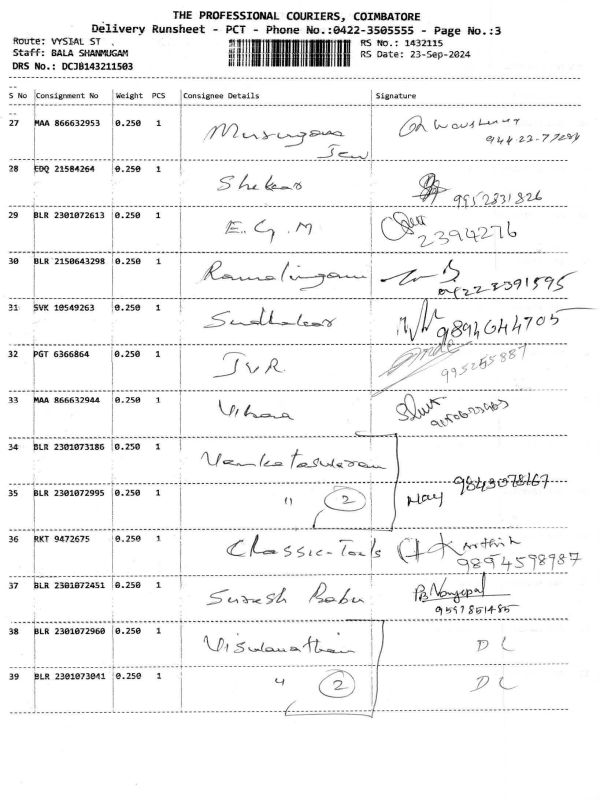 THE PROFESSIONAL COURIERS, COIMBATORE
Delivery Runsheet - PCT - Phone No.:0422-3505555 - Page No.:3
Route: VYSIAL ST RS No.: 1432115
Staff: BALA SHANMUGAM RS Date: 23-Sep-2024
DRS No.: DCJB143211503
S No Consignment No Weight PCS Consignee Details Signature
27 MAA 866632953 0.250 1 Murugan
28 EDQ 21584264 0.250 1 Shekar 9952831826
29 BLR 2301072613 0.250 1 E.G.M 2394276
30 BLR 2150643298 0.250 1 Ramalingam
31 SVK 10549263 0.250 1 Sudhakar 9894644705
32 PGT 6366864 0.250 1 JVR 995255887
33 MAA 866632944 0.250 1
34 BLR 2301073186 0.250 1 Venkateswaran
35 BLR 2301072995 0.250 1 " 2 9843078167
36 RKT 9472675 0.250 1 Classic Tools Karthik
9894598987
37 BLR 2301072451 0.250 1 Suresh Babu
9597851485
38 BLR 2301072960 0.250 1 Viswanathan DL
39 BLR 2301073041 0.250 1 " 2 DL